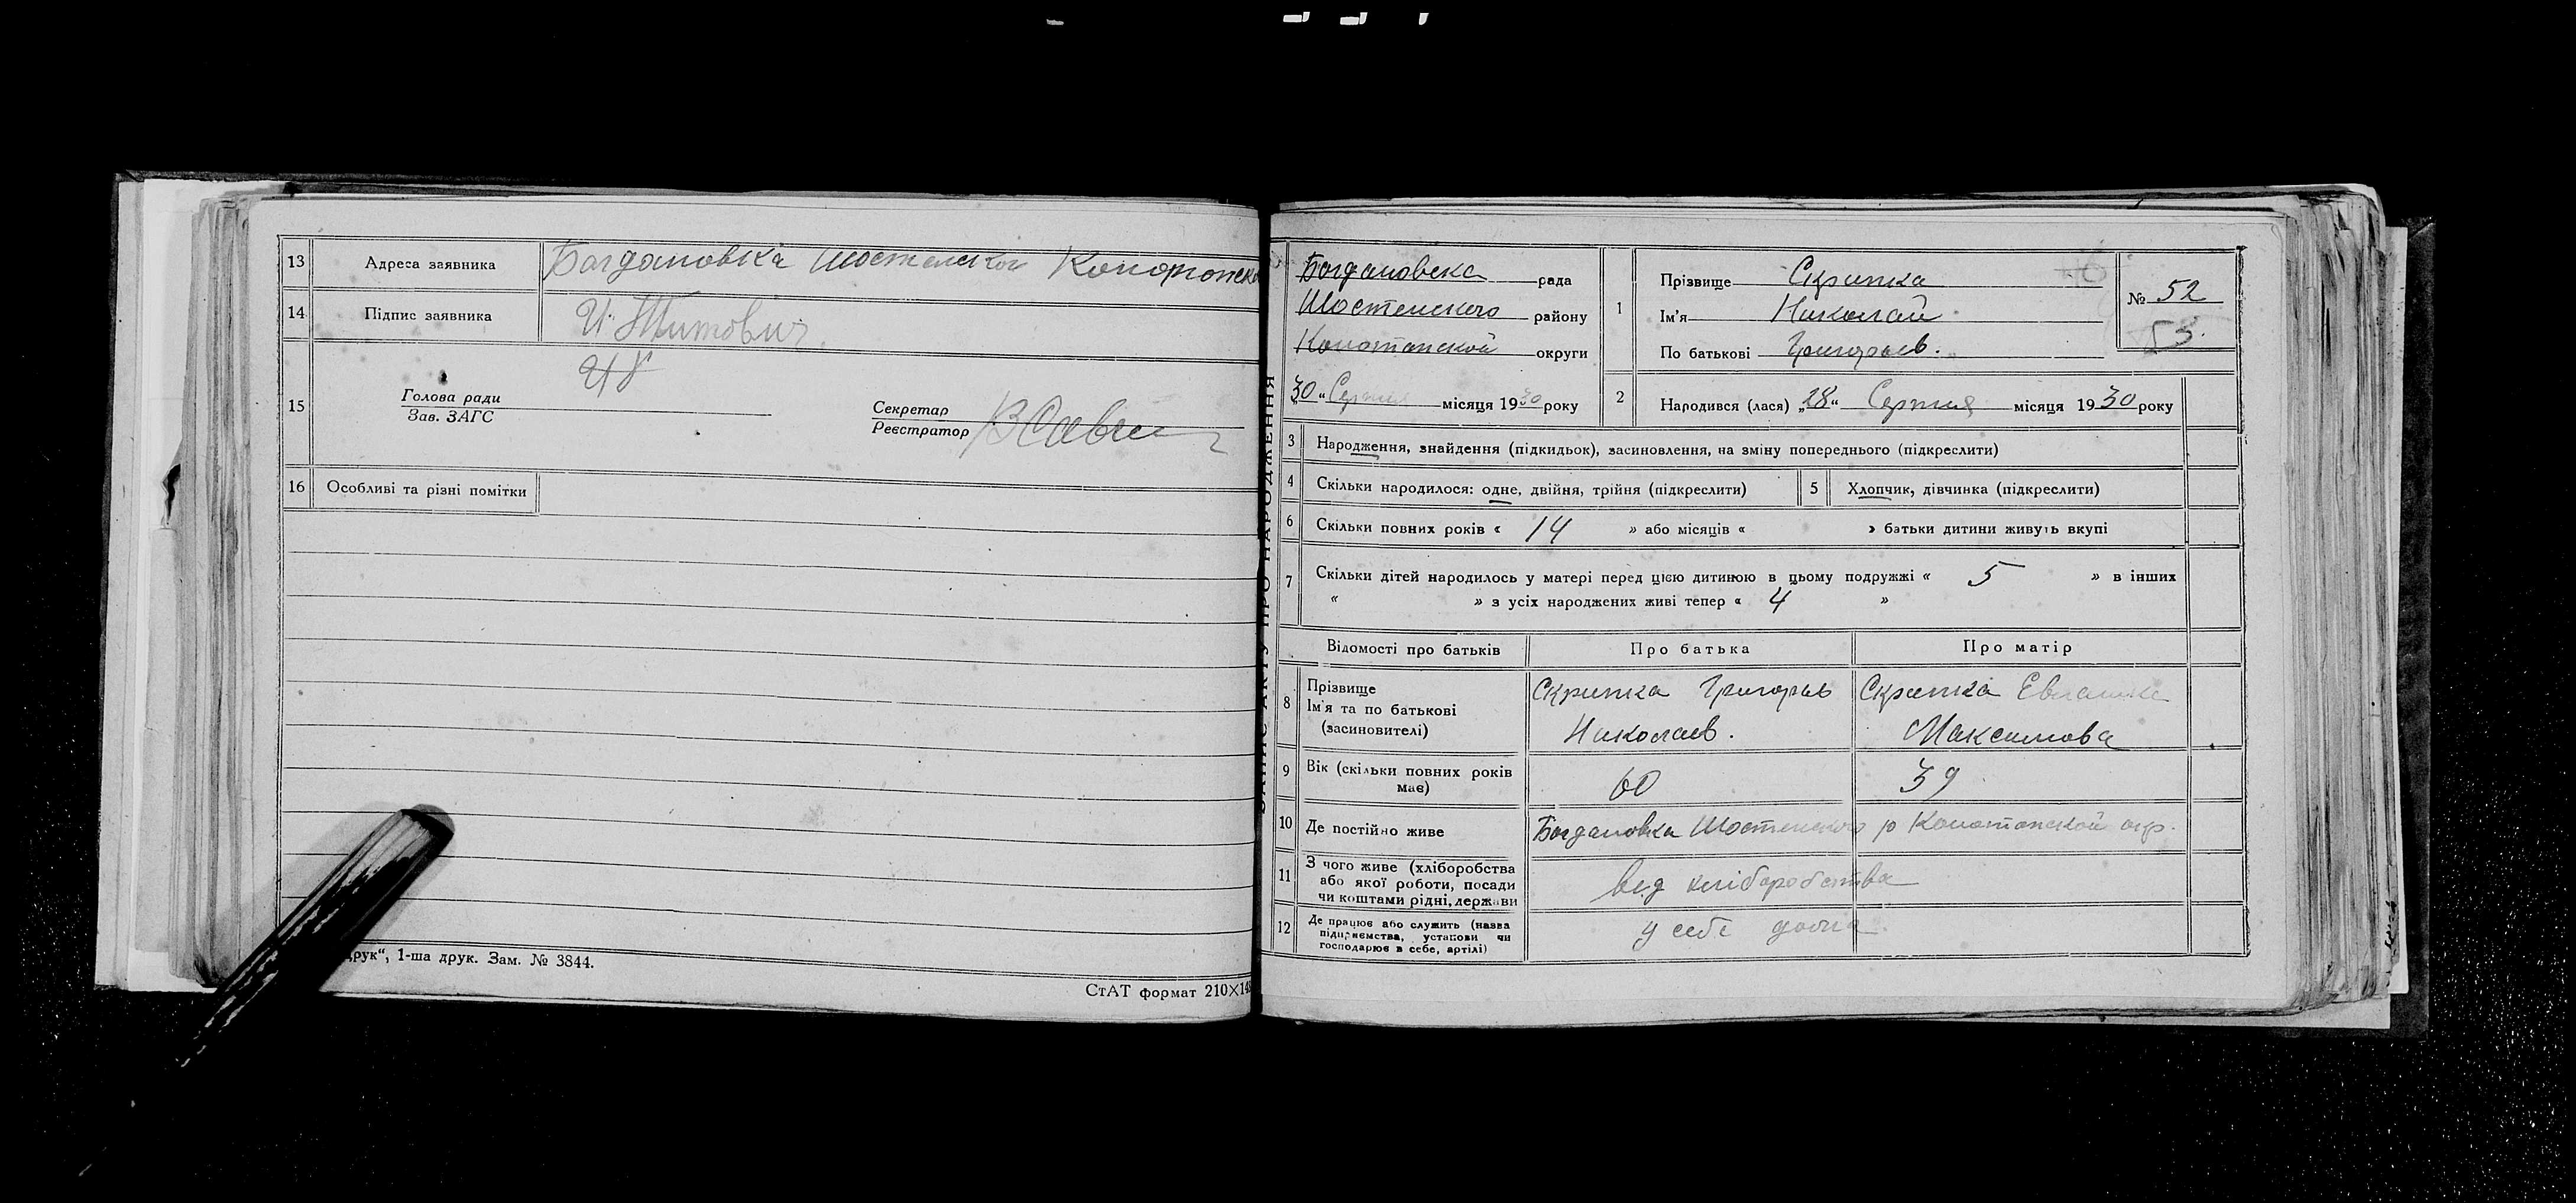 13 Адреса заявника Богдановка Шостенского Конотопско
14 Підпис заявника И. Титович
15 Голова ради
Зав. ЗАГС
Секретар
Реєстратор
16 Особливі та різні помітки
друк“, 1-ша друк. Зам. № 3844.
СтАТ формат 210×148
ЗАПИС АКТУ ПРО НАРОДЖЕННЯ
Богдановска рада
Шостенского району
Конотопской округи
„30“ Серпня місяця 1930 року
1 Прізвище Скрипка
Ім’я Николай
По батькові Григорьев.
№ 52
53
2 Народився (лася) „28“ Серпня місяця 1930 року
3 Народження, знайдення (підкидьок), засиновлення, на зміну попереднього (підкреслити)
4 Скільки народилося: одне, двійня, трійня (підкреслити) 5 Хлопчик, дівчинка (підкреслити)
6 Скільки повних років « 14 » або місяців « » батьки дитини живуть вкупі
7 Скільки дітей народилось у матері перед цією дитиною в цьому подружжі « 5 » в інших
« » з усіх народжених живі тепер « 4 »
Відомості про батьків Про батька Про матір
8 Прізвище
Ім’я та по батькові
(засиновителі)
Скрипка Григорьв
Николаев.
Скрипка
Максимова
9 Вік (скільки повних років
має)
60 39
10 Де постійно живе Богдановка Шостенского р Конотопской окр.
11 З чого живе (хліборобства
або якої роботи, посади
чи коштами рідні, держави
вид хлібороботва
12 Де працює або служить (назва
підприємства, установи чи
господарює в себе, артілі)
у себе дома.